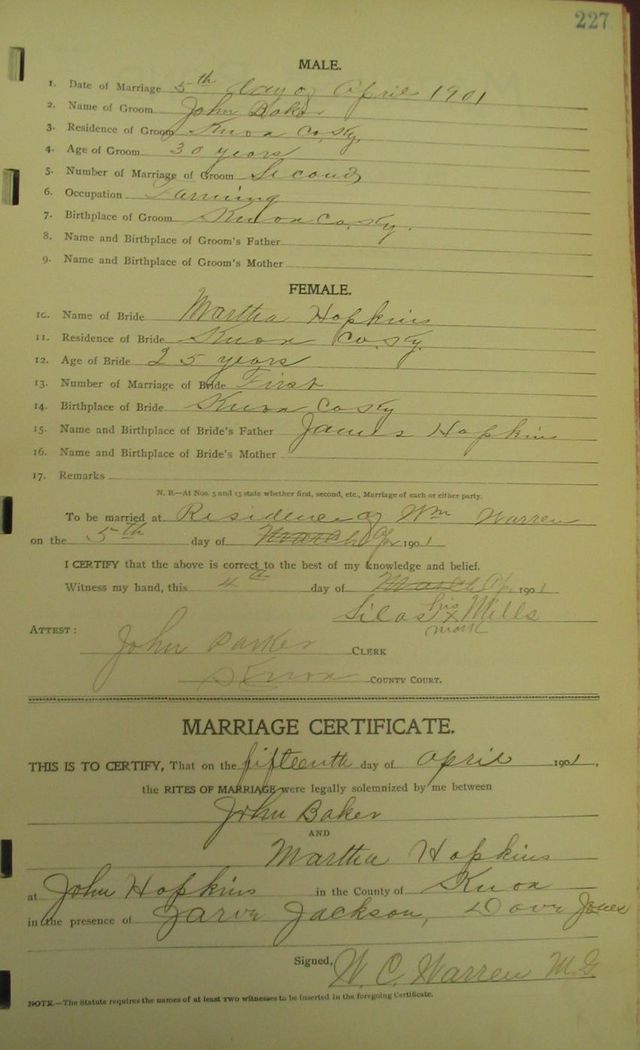 227
MALE.
1. Date of Marriage 5th day of April 1901
2. Name of Groom John Baker
3. Residence of Groom Knox Co. Ky.
4. Age of Groom 30 years
5. Number of Marriage of Groom Second
6. Occupation Farming
7. Birthplace of Groom Knox Co. Ky.
8. Name and Birthplace of Groom's Father
9. Name and Birthplace of Groom's Mother
FEMALE.
10. Name of Bride Martha Hopkins
11. Residence of Bride Knox Co. Ky.
12. Age of Bride 25 years
13. Number of Marriage of Bride First
14. Birthplace of Bride Knox Co Ky
15. Name and Birthplace of Bride's Father James Hopkins
16. Name and Birthplace of Bride's Mother
17. Remarks
N. B.—At Nos. 5 and 13 state whether first, second, etc., Marriage of each or either party.
To be married at Residence of Wm Warren
on the 5th day of March Ap 1901
I CERTIFY that the above is correct to the best of my knowledge and belief.
Witness my hand, this 4th day of March Ap. 1901
Silas his x Mills
mark
ATTEST: John Parker CLERK
Knox COUNTY COURT.
MARRIAGE CERTIFICATE.
THIS IS TO CERTIFY, That on the fifteenth day of April 1901.
the RITES OF MARRIAGE were legally solemnized by me between
John Baker
AND
Martha Hopkins
at John Hopkins in the County of Knox
in the presence of Jackson, Jones
Signed, W. C. Warren M. G.
NOTE.—The Statute requires the names of at least two witnesses to be inserted in the foregoing Certificate.